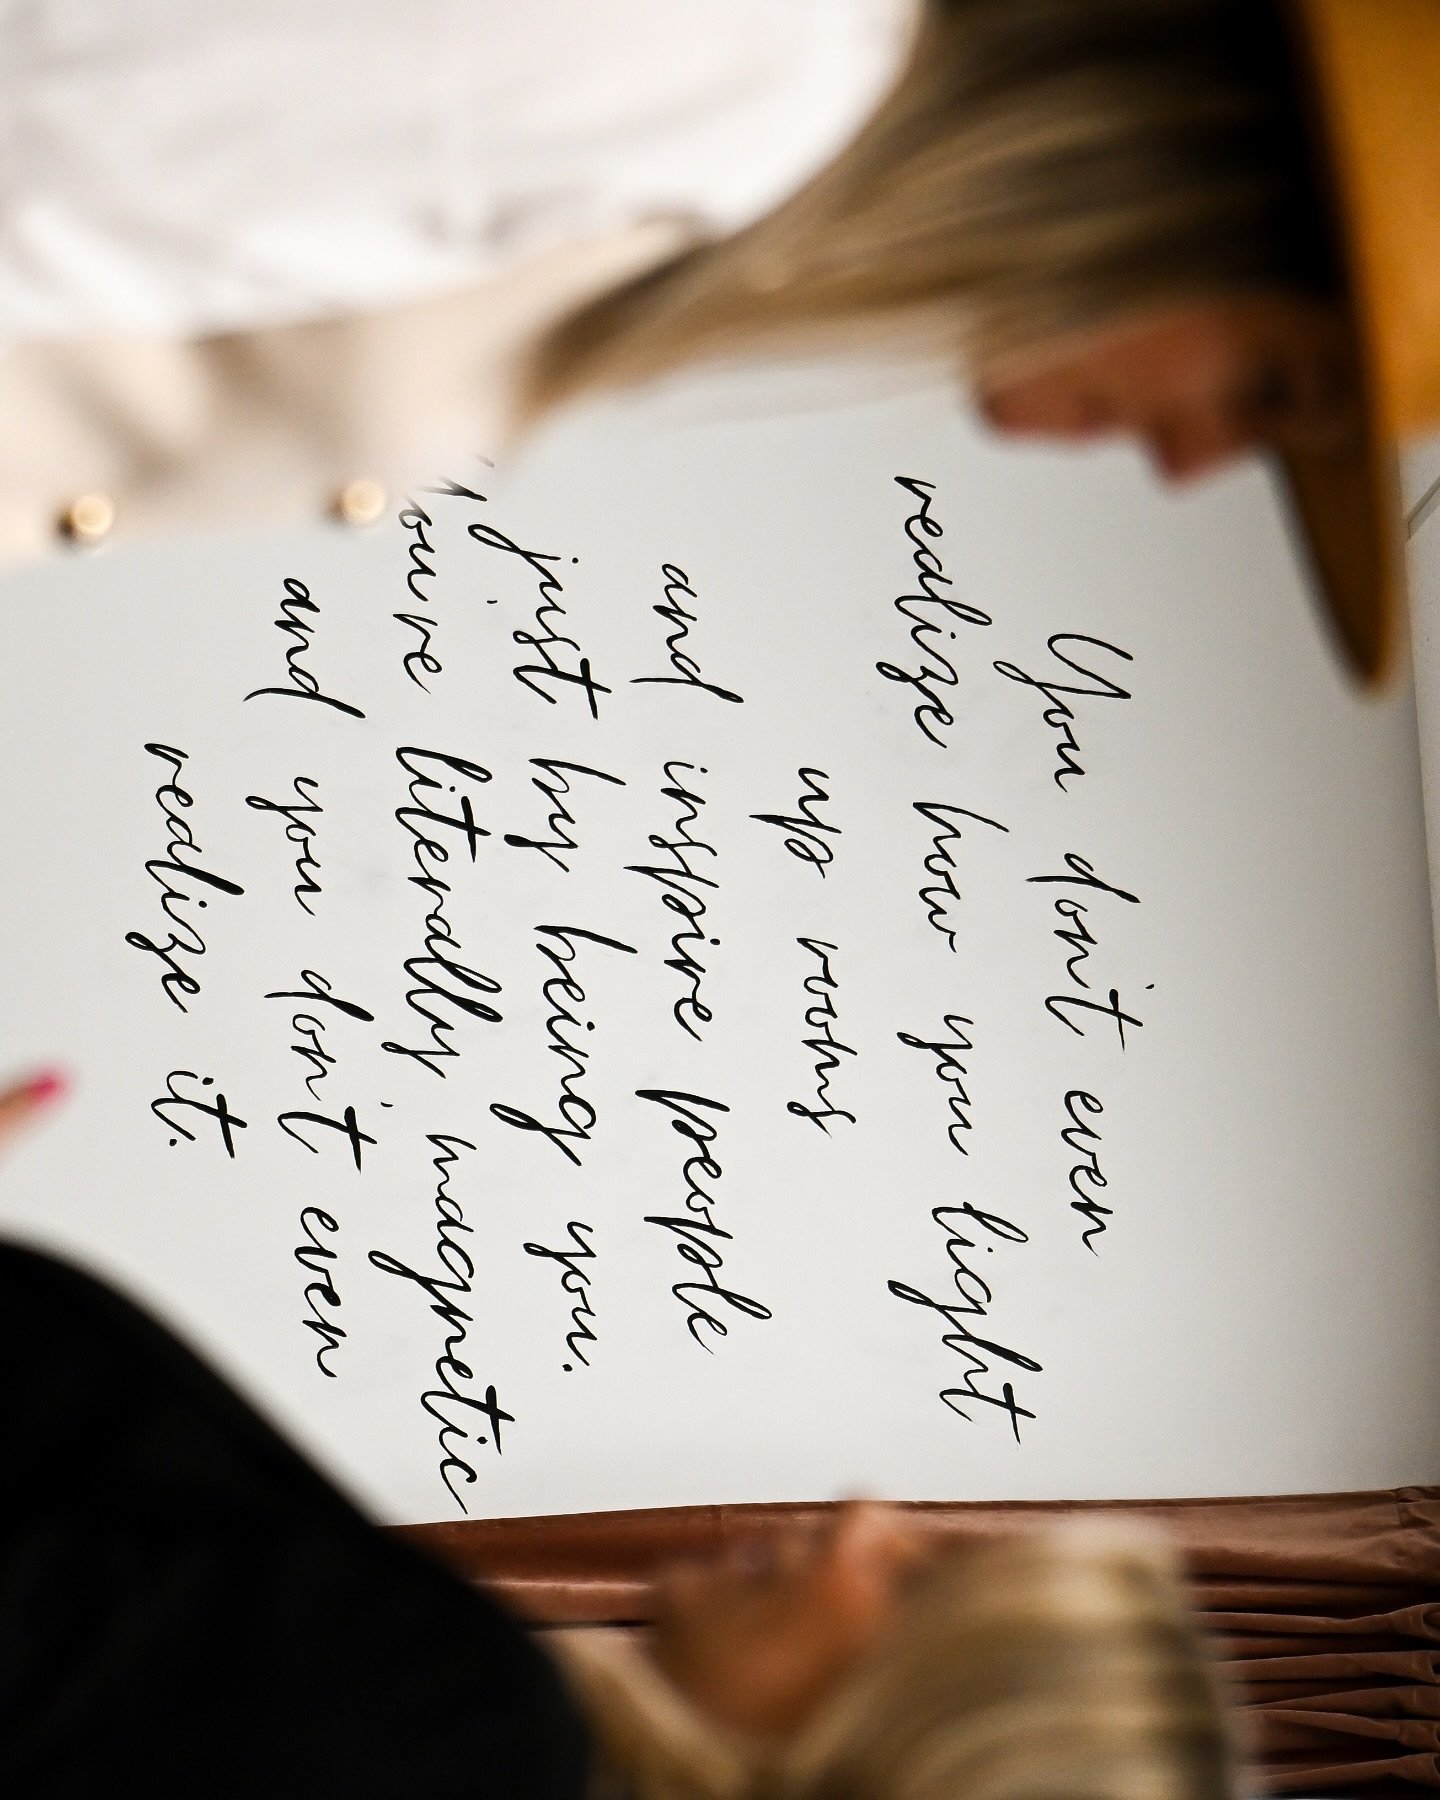 You don't even
realize how you light
up rooms
and inspire people
just by being you.
You're literally magnetic
and you don't even
realize it.